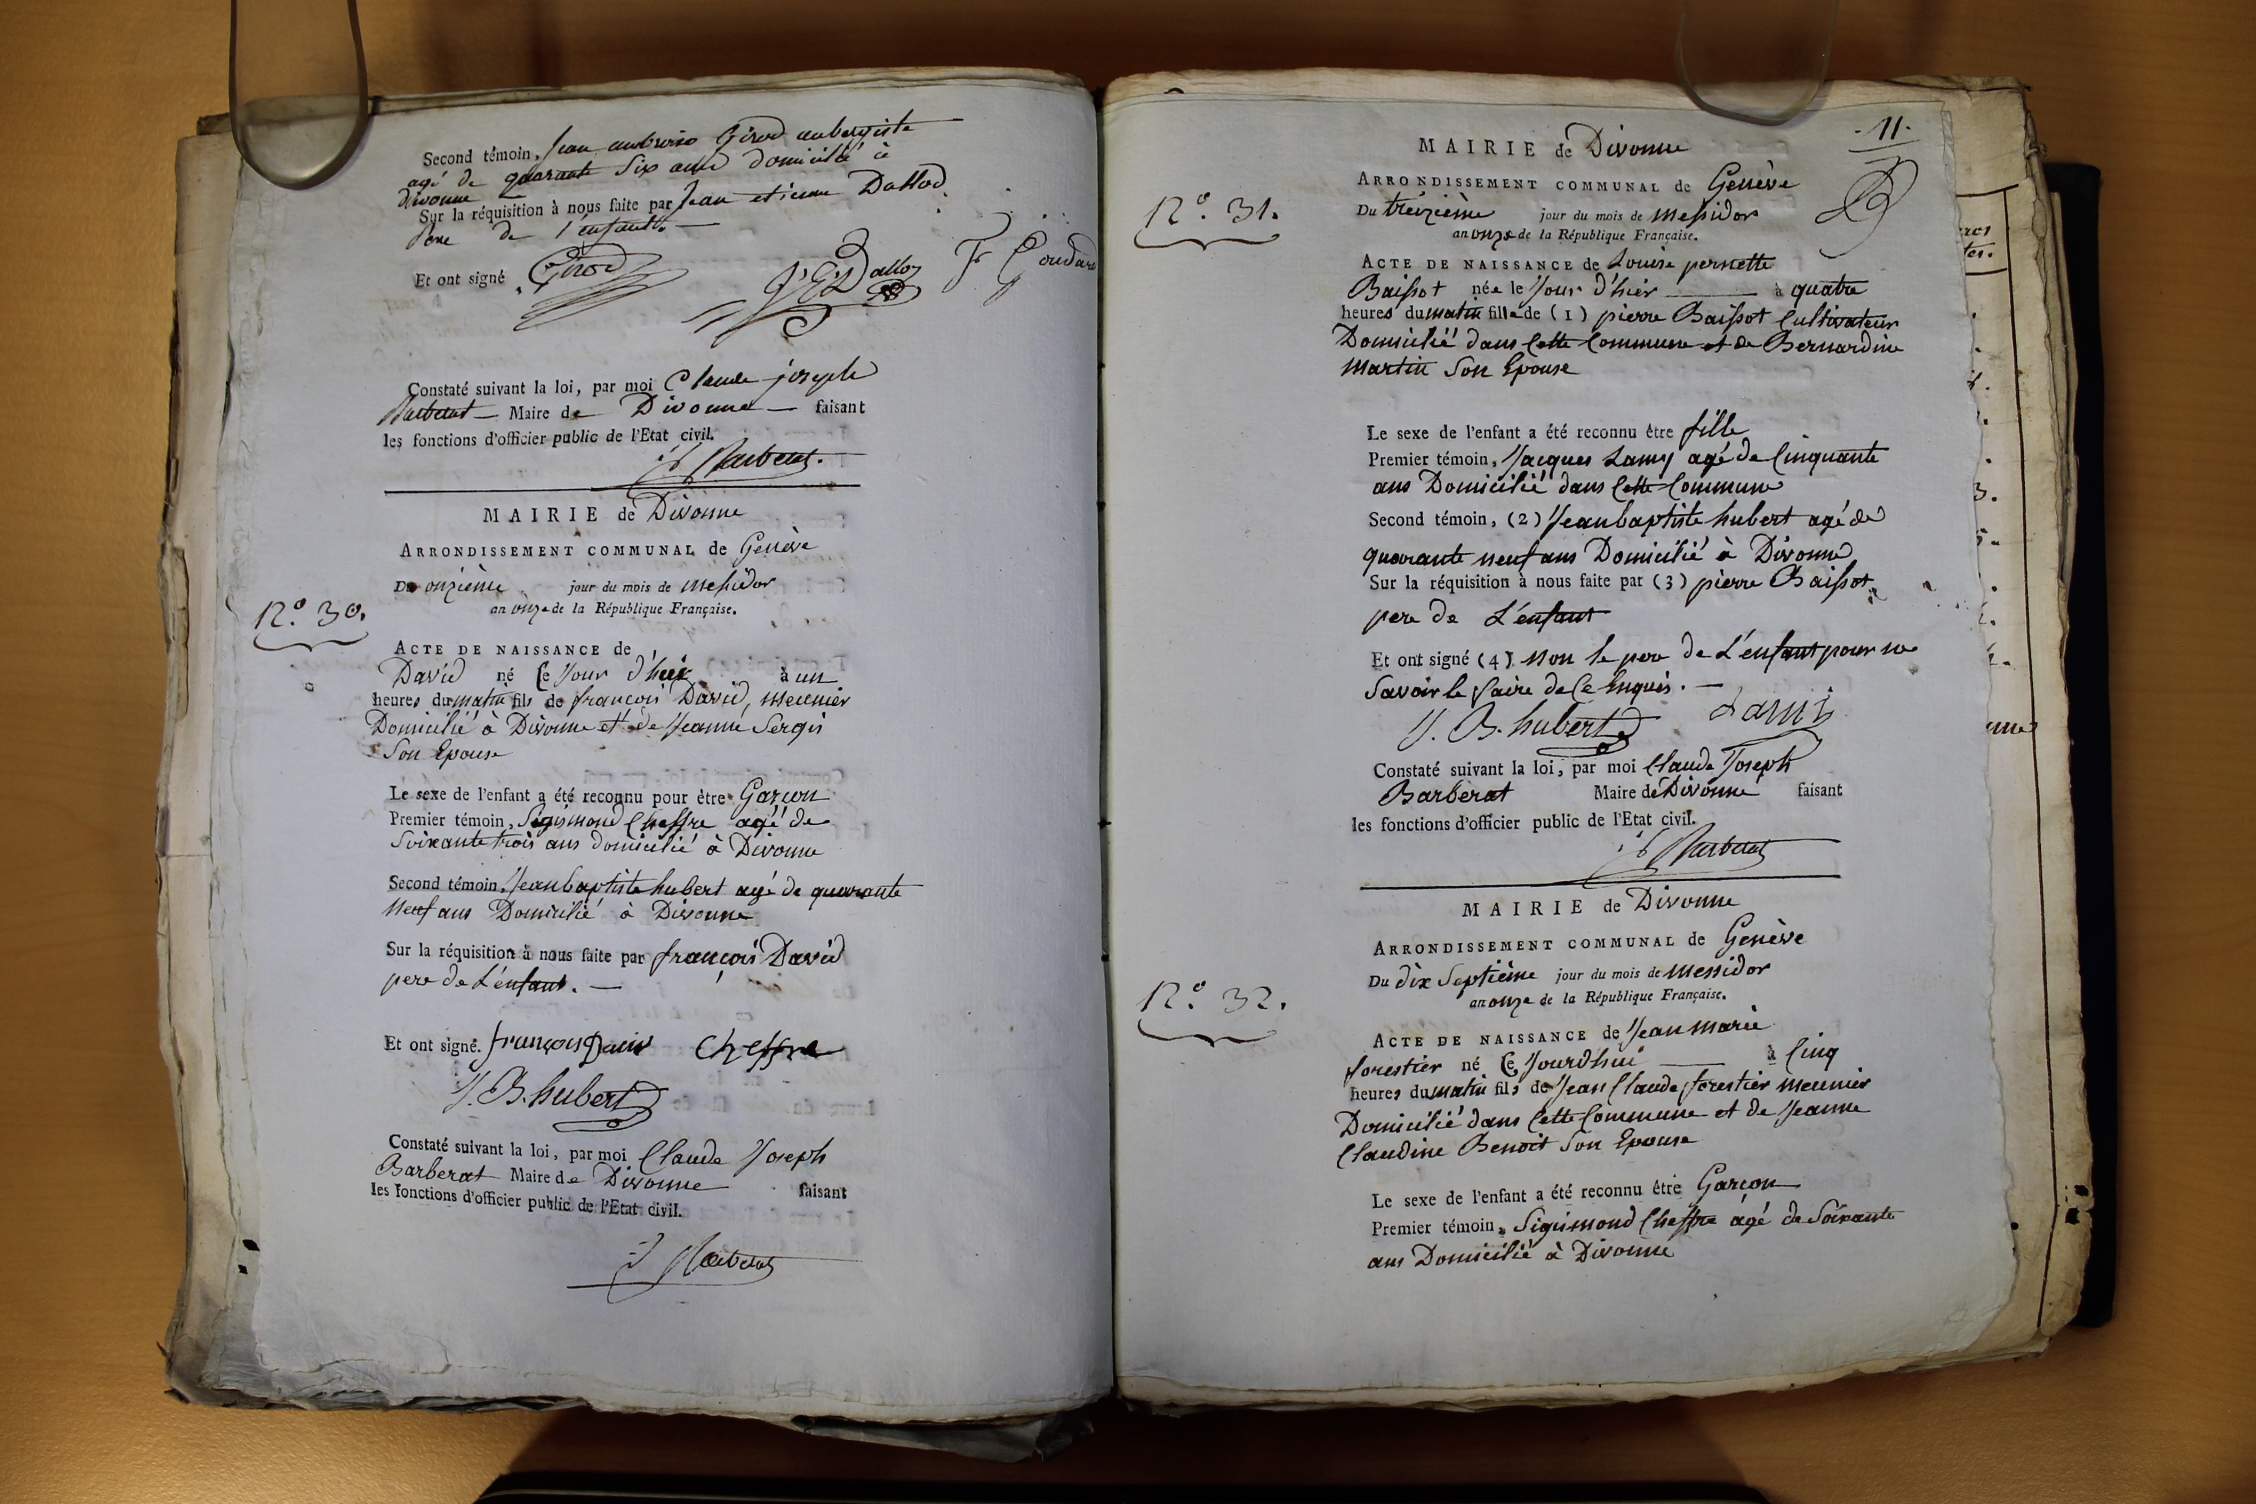 Second témoin, Jean ambroise Girod aubergiste
agé de quarante six ans domicilié à
divonne
Sur la réquisition à nous faite par Jean etienne Dalloz
Pere de l'enfant.
Et ont signé Girod J. E. Dalloz
Constaté suivant la loi, par moi Claude joseph
Barberat Maire de Divonne faisant
les fonctions d'officier public de l'Etat civil.
Barberat
MAIRIE de Divonne
ARRONDISSEMENT COMMUNAL de Genève
Du onzième jour du mois de messidor
an onze de la République Française.
N.º 30.
ACTE DE NAISSANCE de
David né le Jour d'hier à un
heures du matin fils de françois David, meunier
Domicilié à Divonne et de Jeanne Sergis
Son Epouse
Le sexe de l'enfant a été reconnu pour être Garçon
Premier témoin, Sigismond Cheffre agé de
Soixante trois ans domicilié à Divonne
Second témoin, Jean baptiste hubert agé de quarante
neuf ans Domicilié à Divonne
Sur la réquisition à nous faite par françois David
pere de L'enfant.
Et ont signé. françois David Cheffre
J. B. hubert
Constaté suivant la loi, par moi Claude Joseph
Barberat Maire de Divonne faisant
les fonctions d'officier public de l'Etat civil.
Barberat
11.
MAIRIE de Divonne
ARRONDISSEMENT COMMUNAL de Genève
N.º 31.
Du treizième jour du mois de messidor
an onze de la République Française.
ACTE DE NAISSANCE de Louise pernette
Baissot née le Jour d'hier à quatre
heures du matin fille de (1) pierre Baissot Cultivateur
Domicilié dans Cette Commune et de Bernardine
Martin Son Epouse
Le sexe de l'enfant a été reconnu être fille
Premier témoin, Jacques Lamy agé de Cinquante
ans Domicilié dans Cette Commune
Second témoin, (2) Jean baptiste hubert agé de
quarante neuf ans Domicilié à Divonne
Sur la réquisition à nous faite par (3) pierre Baissot
pere de L'enfant
Et ont signé (4) Non le pere de L'enfant pour ne
Savoir le faire de Ce Enquis.
J. B. hubert Lami
Constaté suivant la loi, par moi Claude Joseph
Barberat Maire de Divonne faisant
les fonctions d'officier public de l'Etat civil.
Barberat
MAIRIE de Divonne
ARRONDISSEMENT COMMUNAL de Genève
Du dix Septième jour du mois de Messidor
an onze de la République Française.
N.º 32.
ACTE DE NAISSANCE de Jean Marie
forestier né Ce Jourdhui à Cinq
heures du matin fils de Jean Claude forestier meunier
Domicilié dans Cette Commune et de Jeanne
Claudine Benoit Son Epouse
Le sexe de l'enfant a été reconnu être Garcon
Premier témoin, Sigismond Cheffre agé de Soixante
ans Domicilié à Divonne